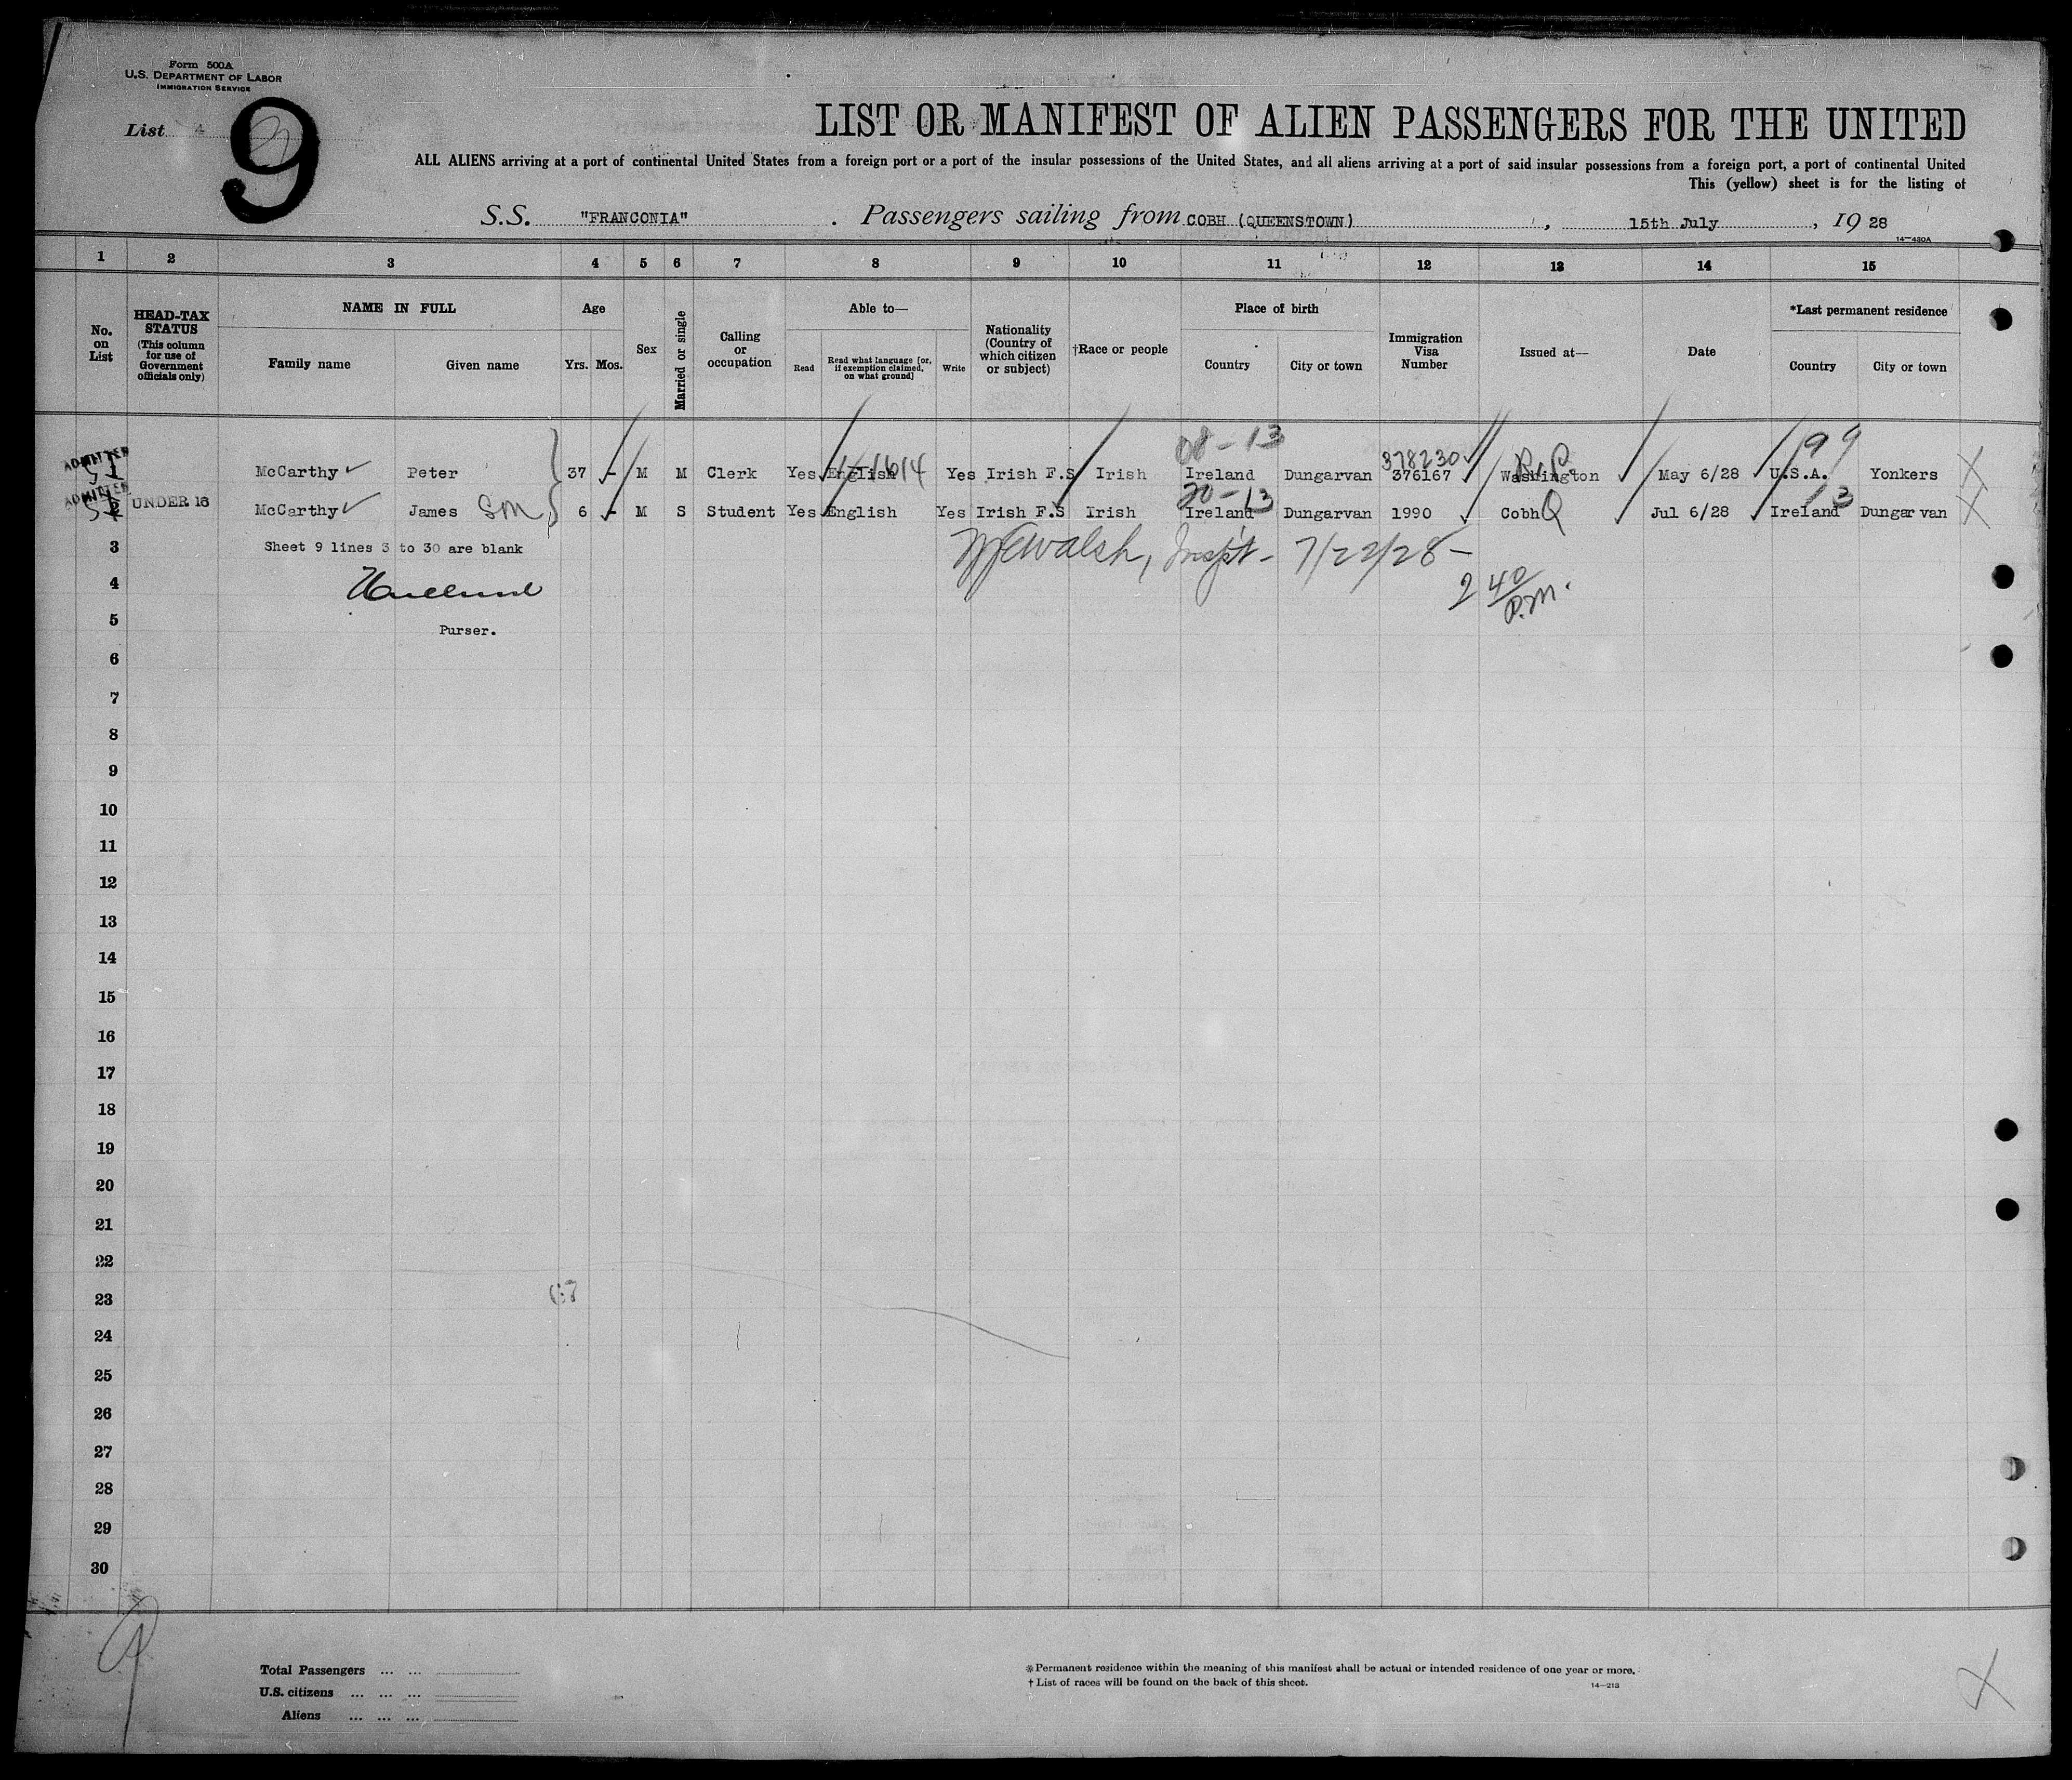 Form 500A
U.S. DEPARTMENT OF LABOR
IMMIGRATION SERVICE
List
9
LIST OR MANIFEST OF ALIEN PASSENGERS FOR THE UNITED
ALL ALIENS arriving at a port of continental United States from a foreign port or a port of the insular possessions of the United States, and all aliens arriving at a port of said insular possessions from a foreign port, a port of continental United
This (yellow) sheet is for the listing of
S.S. "FRANCONIA" . Passengers sailing from COBH (QUEENSTOWN) , 15th July , 19 28
14—430A
1 2 3 4 5 6 7 8 9 10 11 12 13 14 15
No. on List
HEAD-TAX STATUS (This column for use of Government officials only)
NAME IN FULL
Family name Given name
Age
Yrs. Mos.
Sex
Married or single
Calling or occupation
Able to—
Read Read what language [or, if exemption claimed, on what ground] Write
Nationality (Country of which citizen or subject)
†Race or people
Place of birth
Country City or town
Immigration Visa Number
Issued at—
Date
*Last permanent residence
Country City or town
08 - 13 378230 P.P. 99
ADMITTED 1 McCarthy Peter 37 - M M Clerk Yes English 1614 Yes Irish F.S Irish Ireland Dungarvan 376167 Washington May 6/28 U.S.A. Yonkers X
20 - 13 13
ADMITTED 2 UNDER 16 McCarthy James SM 6 - M S Student Yes English Yes Irish F.S Irish Ireland Dungarvan 1990 Cobh Q Jul 6/28 Ireland Dungarvan X
3 Sheet 9 lines 3 to 30 are blank
Walsh, Inspt - 7/22/28 -
2 40 P.M.
4
5 Purser.
6
7
8
9
10
11
12
13
14
15
16
17
18
19
20
21
22
23
24
25
26
27
28
29
30
9
Total Passengers ... ...
U.S. citizens ... ... ...
Aliens ... ... ...
* Permanent residence within the meaning of this manifest shall be actual or intended residence of one year or more.
† List of races will be found on the back of this sheet.
14—213
X